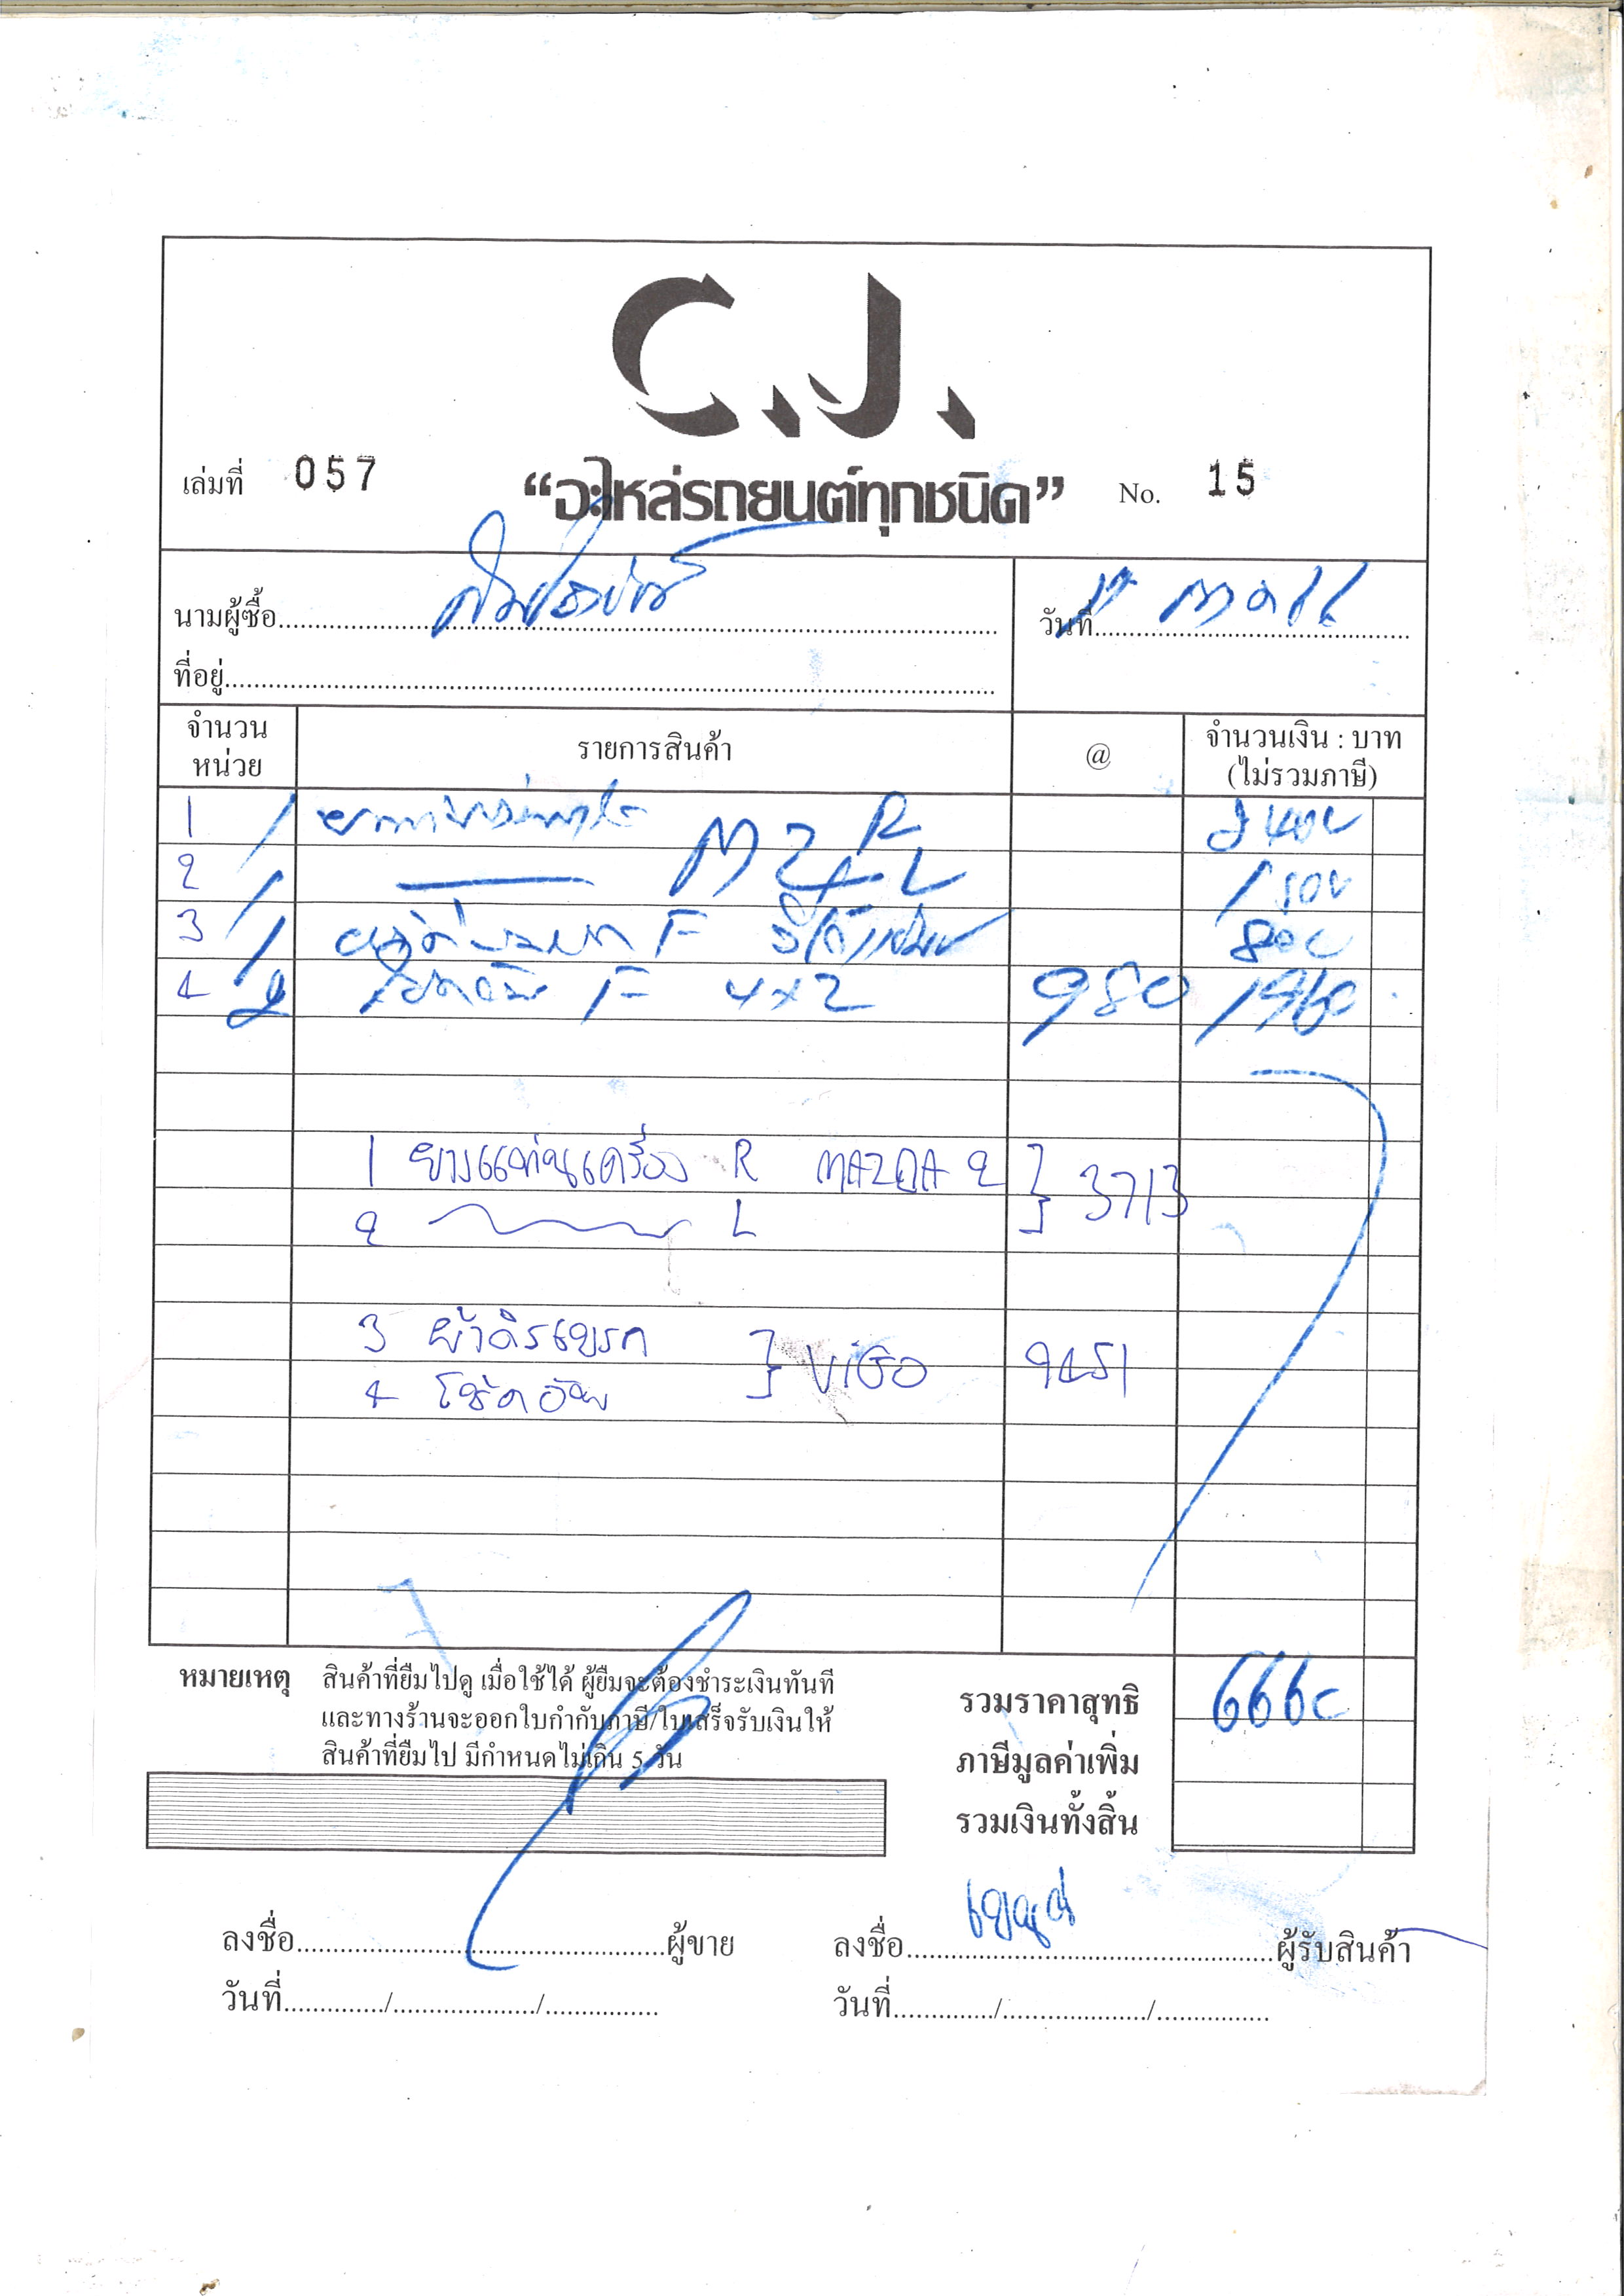 C.J.
เล่มที่ 057 “อะไหล่รถยนต์ทุกชนิด” No. 15
นามผู้ซื้อ วันที่
ที่อยู่
จำนวนหน่วย รายการสินค้า @ จำนวนเงิน : บาท (ไม่รวมภาษี)
1 / M2 R 2400
2 / L 1500
3 / F 800
4 2 F 4x2 980 1960
1 ยางแท่นเครื่อง R MAZDA 2 3713
2 L
3 ผ้าดิสเบรก VIGO 9451
4 โช้คอัพ
หมายเหตุ สินค้าที่ยืมไปดู เมื่อใช้ได้ ผู้ยืมจะต้องชำระเงินทันที
และทางร้านจะออกใบกำกับภาษี/ใบเสร็จรับเงินให้
สินค้าที่ยืมไป มีกำหนดไม่เกิน 5 วัน
รวมราคาสุทธิ 6660
ภาษีมูลค่าเพิ่ม
รวมเงินทั้งสิ้น
ลงชื่อ ผู้ขาย ลงชื่อ ผู้รับสินค้า
วันที่ / / วันที่ / /